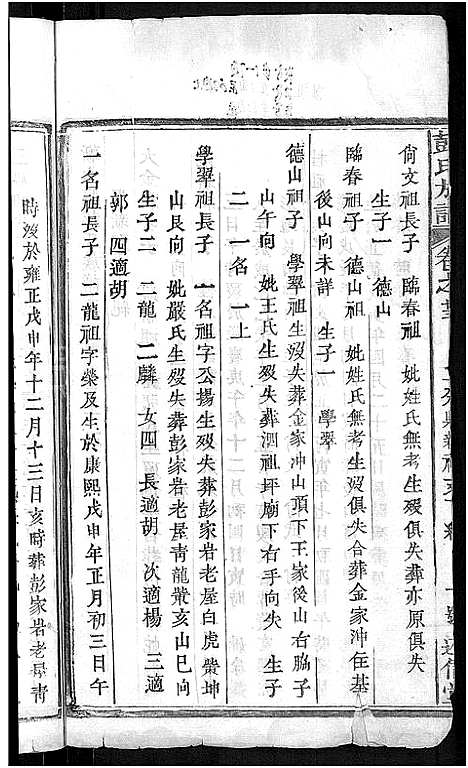 彭氏族譜
尙文祖長子 臨春祖 妣姓氏無考生歿俱失葬亦原俱失
生子一 德山
臨春祖子 德山祖 妣姓氏無考生歿俱失合葬金家冲
後山向未詳 生子一 學翠
德山祖子 學翠祖生歿失葬金家冲山頂下王家後山右脇子
山午向 妣王氏生歿失葬泗祖坪廟下右手向失 生子
二 一名 一上
學翠祖長子 一名祖字公揚生歿失葬彭家岩老屋白虎嘴坤
山艮向 妣嚴氏生歿失葬彭家岩老屋靑龍嘴亥山巳向
生子二 二龍 二麟 女四 長適胡 次適楊 三適
郭 四適胡
一名祖長子 二龍祖字榮及生於康熙戊申年正月初三日午
時歿於雍正戊申年十二月十三日亥時葬彭家岩老屋靑